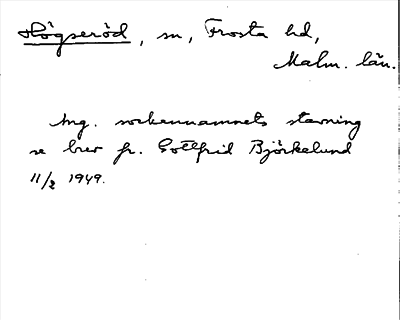 Högseröd, sn, Frosta hd,
Malm. län.
Ang. sockennamnets stavning
se brev fr. Gottfrid Björkelund
11/2 1949.